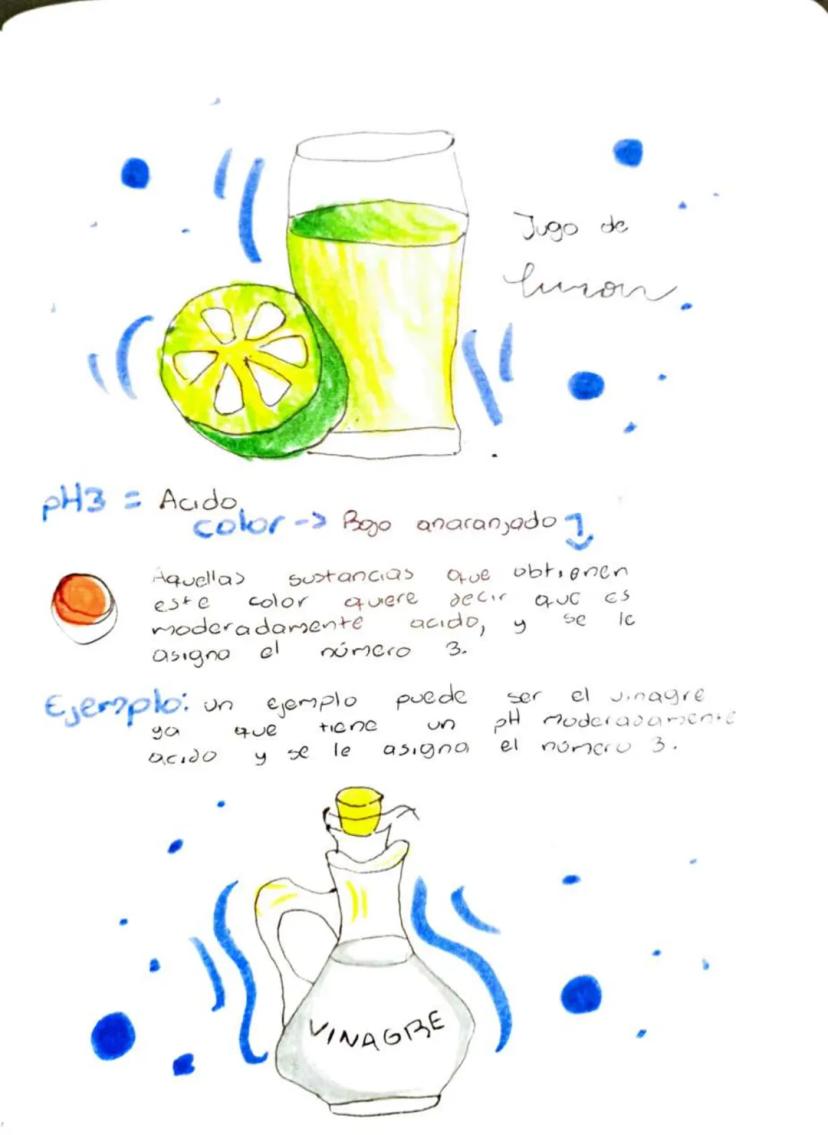 Jugo de
limon
pH3 = Acido
color -> Rojo anaranjado
Aquellas sustancias que obtienen
este color quiere decir que es
moderadamente acido, y se le
asigna el número 3.
Ejemplo: un ejemplo puede ser el vinagre
ya que tiene un pH moderadamente
acido y se le asigna el número 3.
VINAGRE